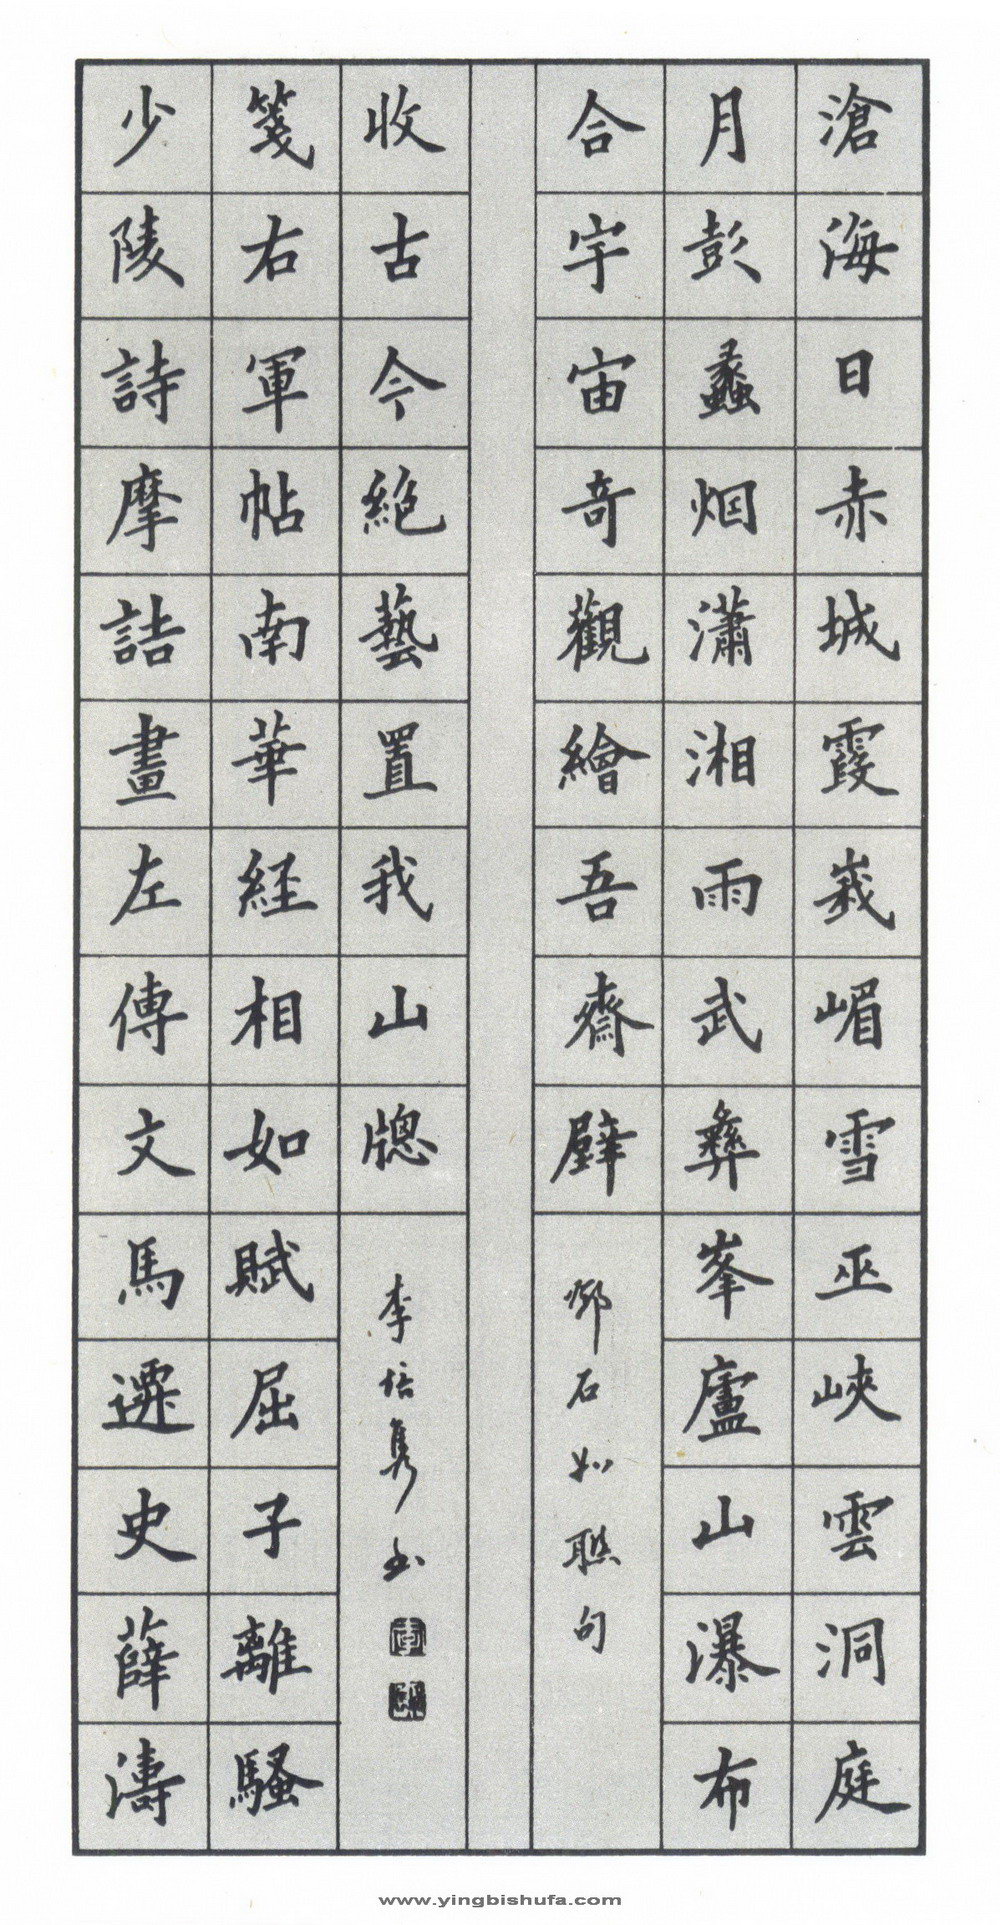 滄海日赤城霞峩嵋雪巫峽雲洞庭
月彭蠡烟瀟湘雨武彝峯廬山瀑布
合宇宙奇觀繪吾齋壁
鄧石如聯句
少陵詩摩詰畫左傳文馬遷史薛濤
箋右軍帖南華経相如賦屈子離騷
收古今絶藝置我山牎
李培隽书
www.yingbishufa.com